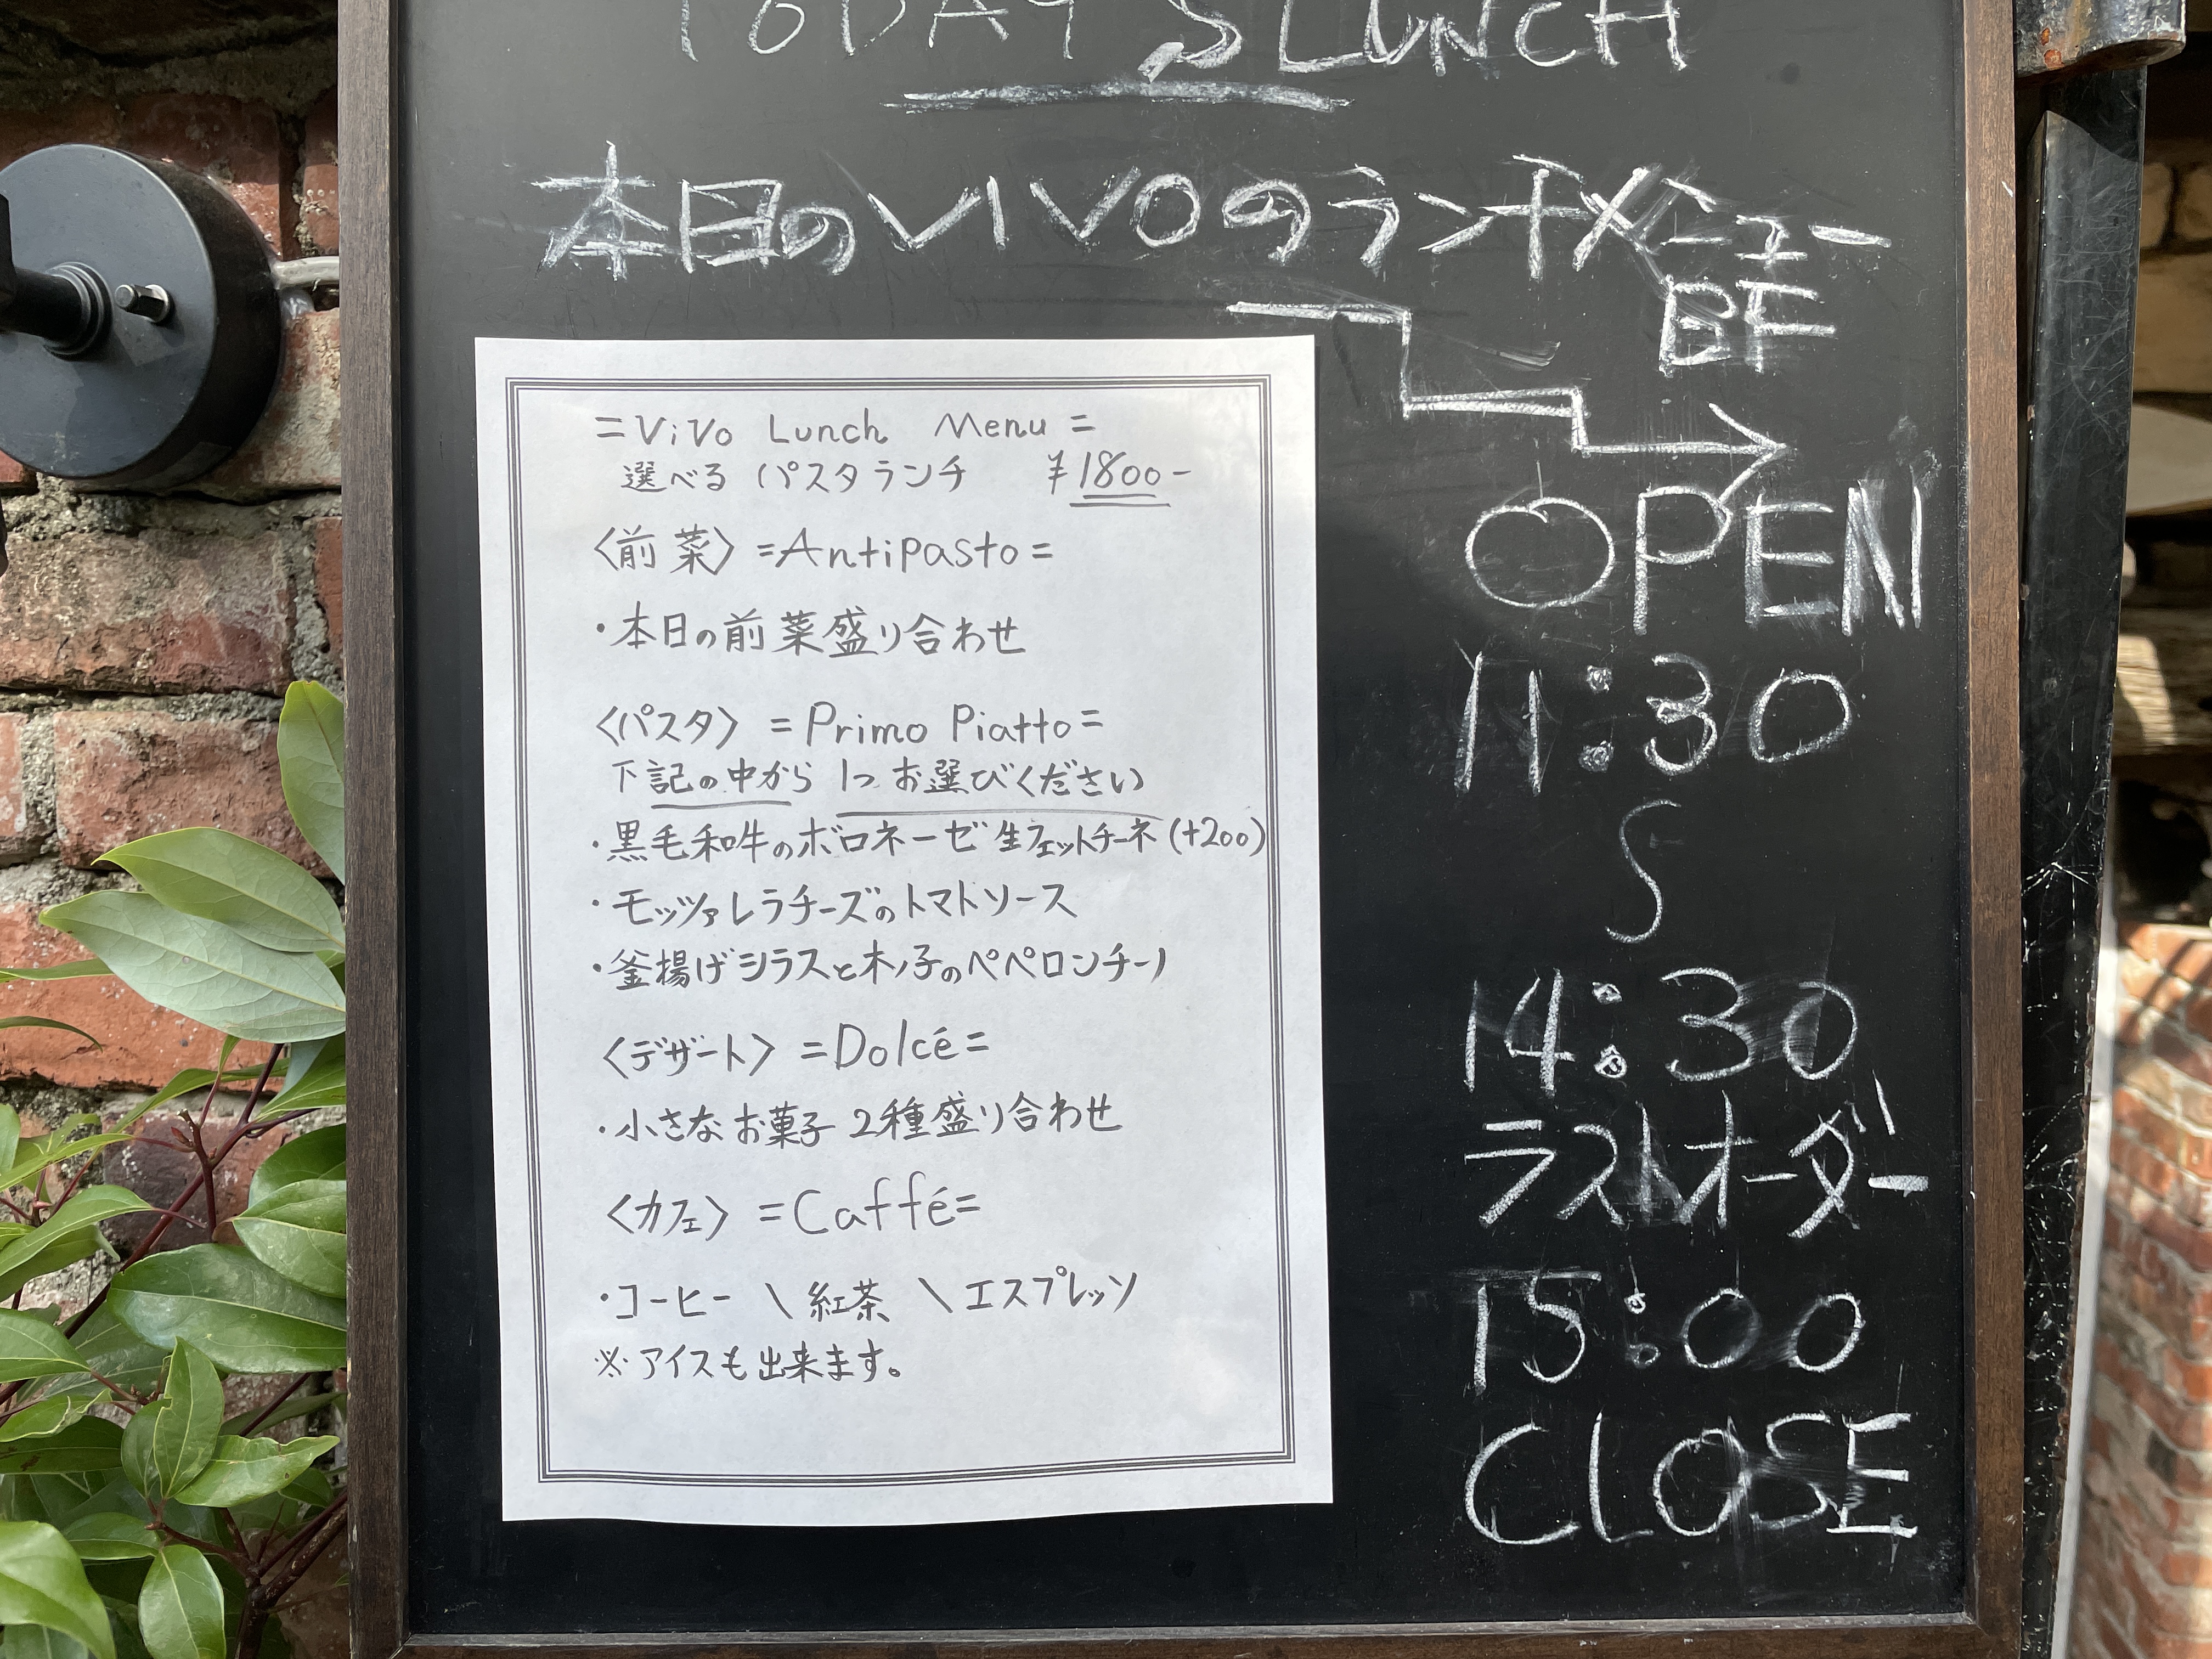 TODAY'S LUNCH
本日のVIVOのランチメニュー
BF
=ViVo Lunch Menu=
選べるパスタランチ ¥1800-
〈前菜〉=Antipasto=
・本日の前菜盛り合わせ
〈パスタ〉=Primo Piatto=
下記の中から1つお選びください
・黒毛和牛のボロネーゼ 生フェットチーネ(+200)
・モッツァレラチーズのトマトソース
・釜揚げシラスと木ノ子のペペロンチーノ
〈デザート〉=Dolcé=
・小さなお菓子 2種盛り合わせ
〈カフェ〉=Caffé=
・コーヒー \ 紅茶 \ エスプレッソ
※アイスも出来ます。
OPEN
11:30
∫
14:30
ラストオーダー
15:00
CLOSE